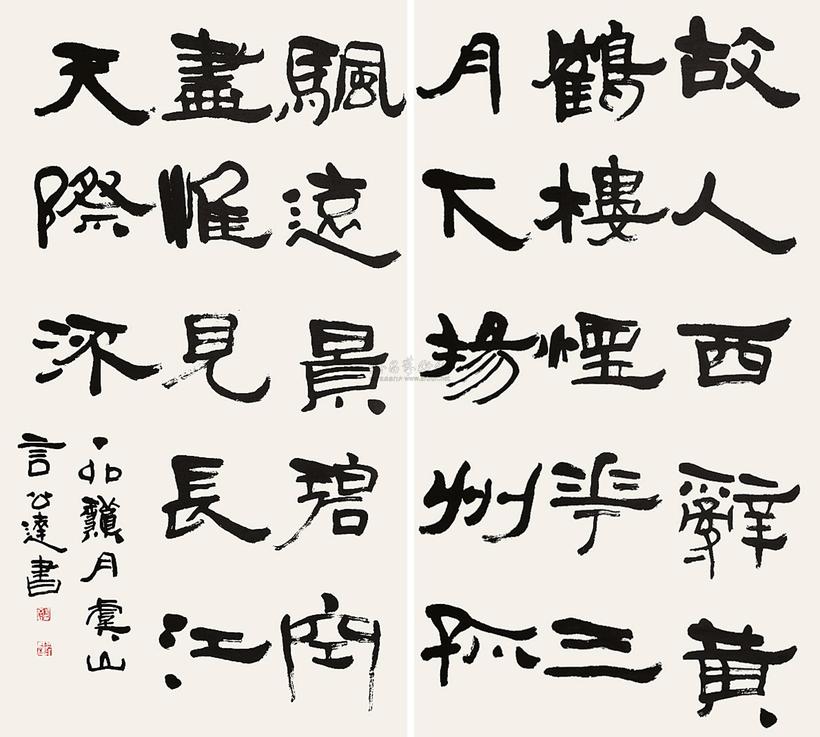 故人西辭黄
鶴樓煙華三
月下揚州孤
颿遠景碧空
盡惟見長江
天際流
丁卯月虞山
言公達書